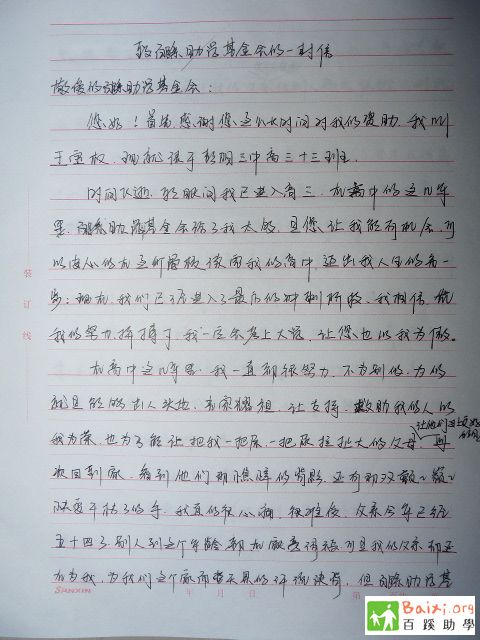 致百蹊助学基金会的一封信
敬爱的百蹊助学基金会：
您好！首先感谢您这么长时间对我们的资助，我叫
王宝权，现就读于彰明三中高三十三班。
时间飞逝，转眼间我已进入高三，在高中的这几年
里，百蹊助学基金会给了我太多，是您让我能有机会，可
以安心的在这所学校读完我的高中，迈出我人生的每一
步；现在，我们已经进入了最后的冲刺阶段，我相信，凭
我的努力拼搏，我一定会考上大学，让您也以我为傲。
装
订
线
在高中这几年里，我一直都很努力，不为别的，为的
就是能够出人头地，光宗耀祖，让支持、救助我的人以
我为荣，也为了能让把我一把屎一把尿拉扯大的父母，
让他们过上更好的日子
次回到家，看到他们那憔悴的背影，还有那双
我真的很心痛，很难受，父亲今年已经
五十四了，别人到这个年龄都在家享清福，可是我的父亲却还
在为我，为我们这个家而，但百蹊助学基
SANXIN
年 月 日
第
Baixi.org
百蹊助學